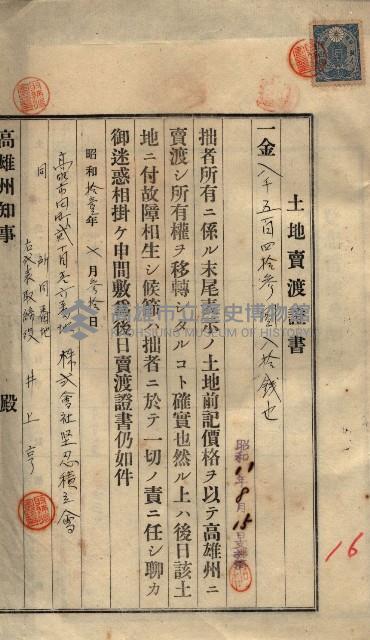 土地賣渡證書
一金八千五百四拾参圓八拾錢也
拙者所有ニ係ル末尾表示ノ土地前記價格ヲ以テ高雄州ニ
賣渡シ所有權ヲ移轉シタルコト確實也然ル上ハ後日該土
地ニ付故障相生シ候節ハ拙者ニ於テ一切ノ責ニ任シ聊カ
御迷惑相掛ケ申間敷候後日賣渡證書仍如件
昭和拾壱年 月参拾日
高雄市田町貳百五六番地 株式會社堅忍積立會
同所同番地
右代表取締役 井上亨
高雄州知事 殿
昭和11年8月15日
16
高雄市立歷史博物館
KAOHSIUNG MUSEUM OF HISTORY